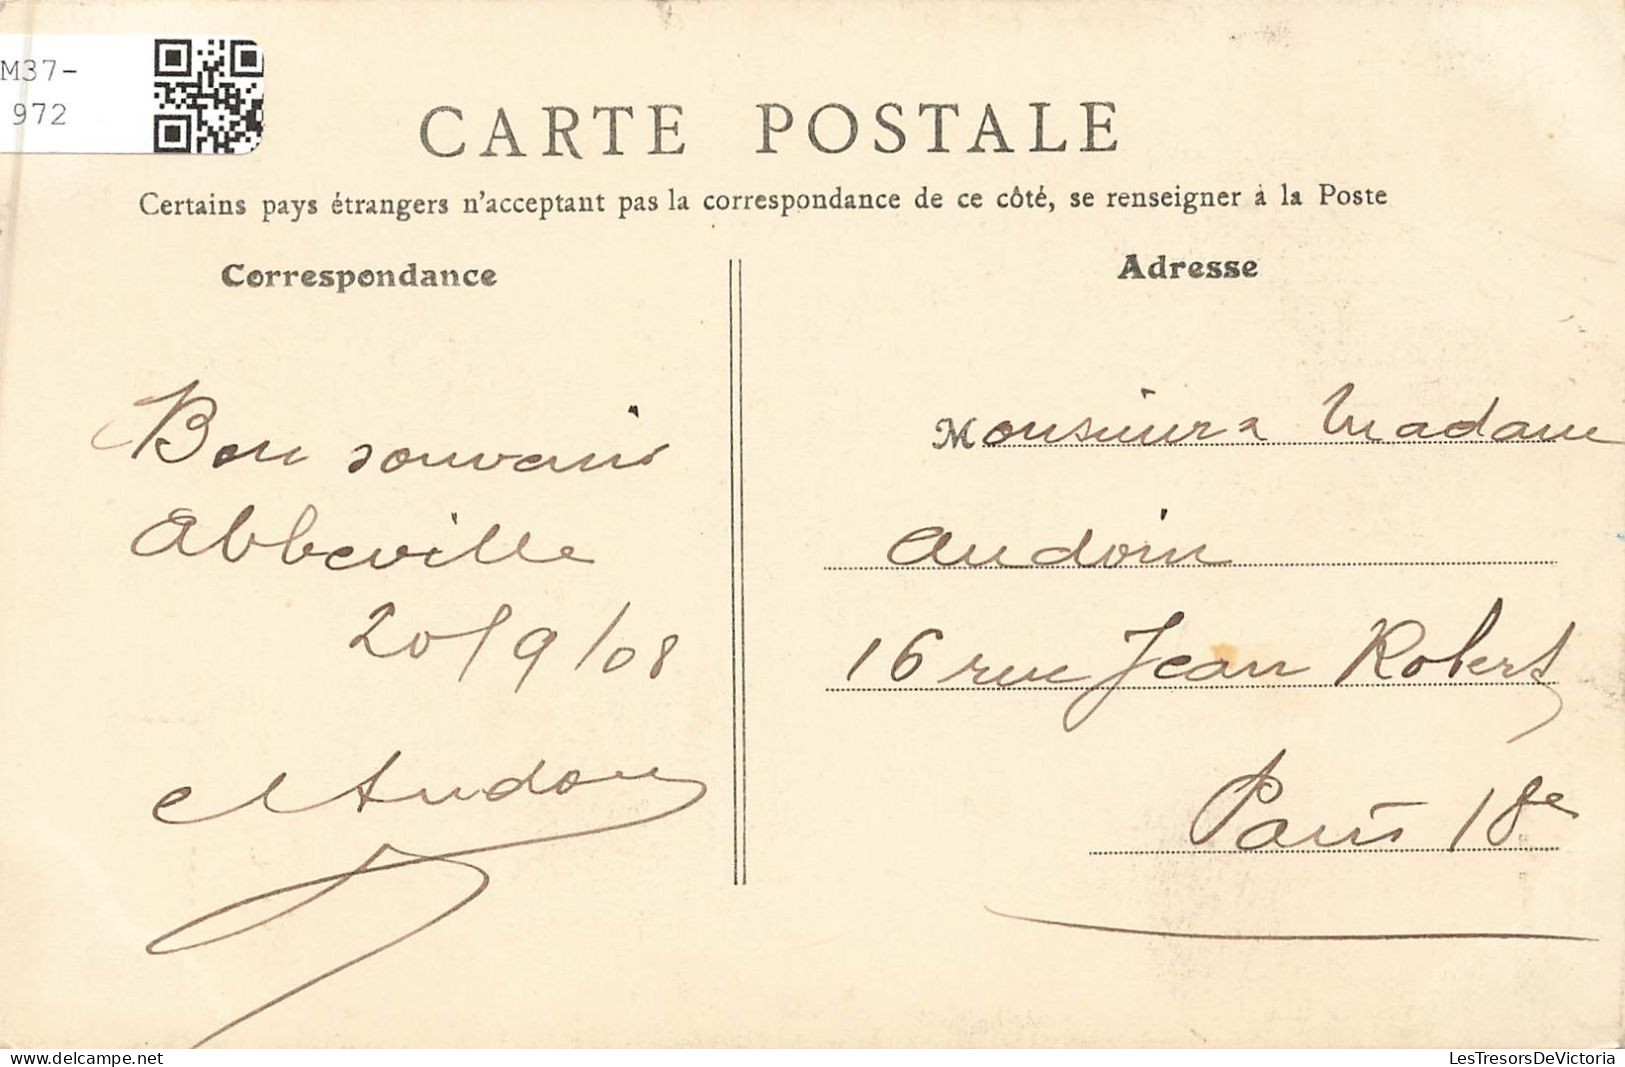 M37-
972
CARTE POSTALE
Certains pays étrangers n'acceptant pas la correspondance de ce côté, se renseigner à la Poste
Correspondance
Adresse
Bon souvenir
Abbeville
20/9/08
Audoin
Monsieur & Madame
Audoin
16 rue Jean Robert
Paris 18e
LesTresorsDeVictoria
www.delcampe.net